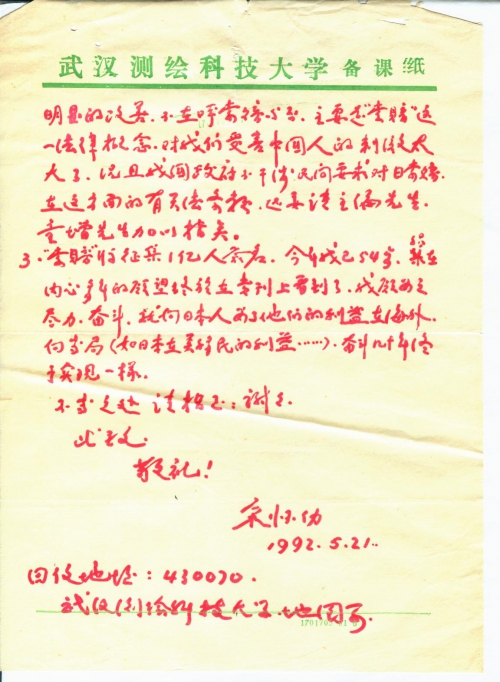 武汉测绘科技大学 备课纸
明显的 不在乎索赔与否, 主要是"索赔"这
一法律概念, 对我们受害中国人的刺激太
大了, 况且我国政府不干涉民间要求对日索赔.
在这方面的有关 还要请主编先生.
童增先生加以指
3. "索赔"将征集1亿人签名, 今年我已54岁, 在
内心多年的愿望终于在专刊上看到了, 我愿为之
尽力. 奋斗, 就向日本人为了他们的利益在海外.
向当局(如日本在美移民的利益……). 奋斗几十年终
于实现一样.
不当之处 请指正: 谢谢.
此致
敬礼!
宋怀
1992.5.21.
回信地址: 430070.
武汉测绘科技大学地图系.